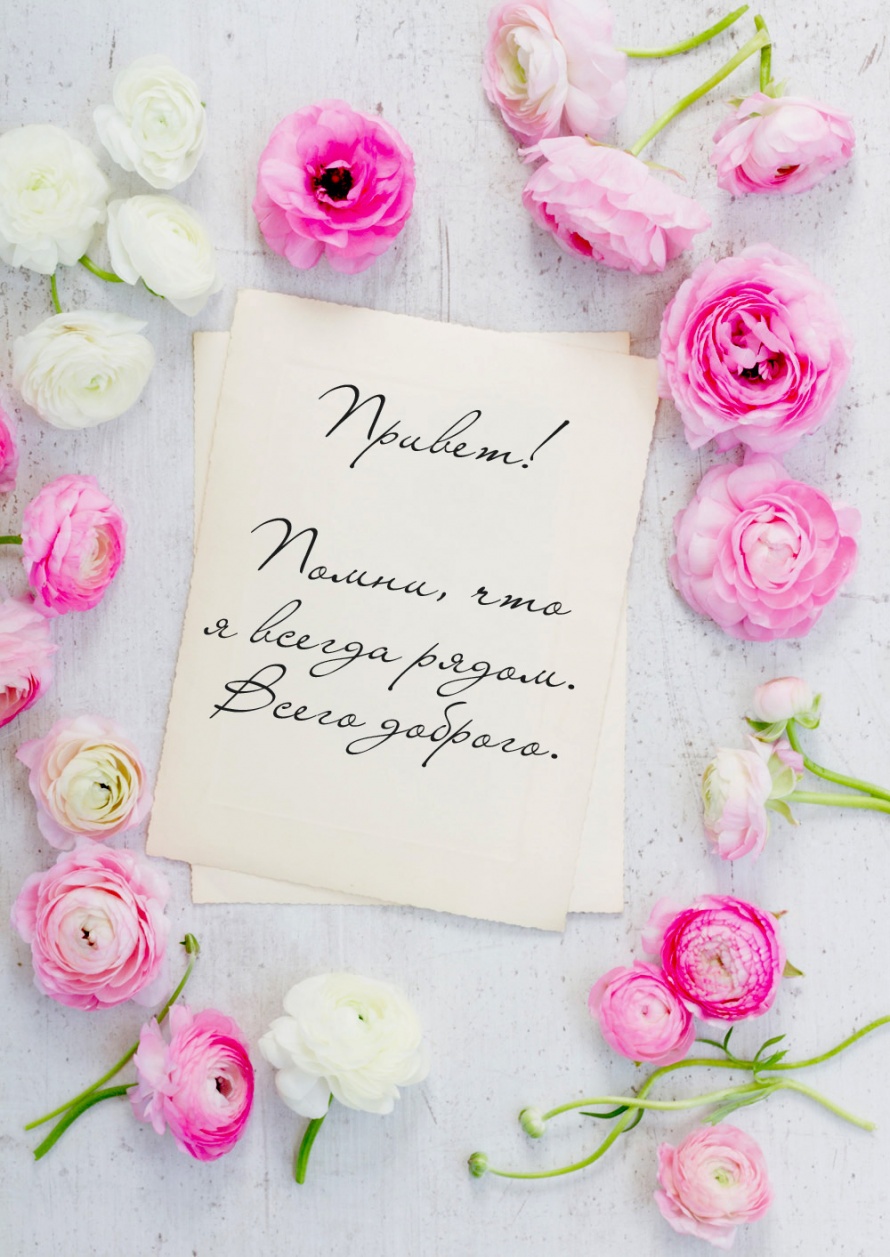 Привет!
Помни, что
я всегда рядом.
Всего доброго.